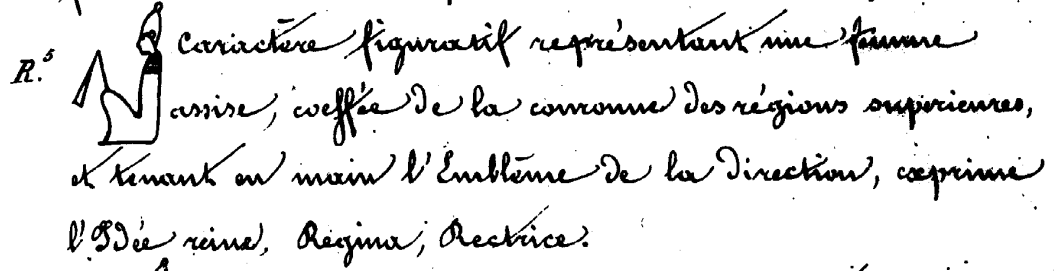 R.5 Caractère figuratif représentant une femme
assise, coeffée de la couronne des régions supérieures,
et tenant en main l'Emblême de la direction, exprime
l'Idée reine, Regina, Rectrice.